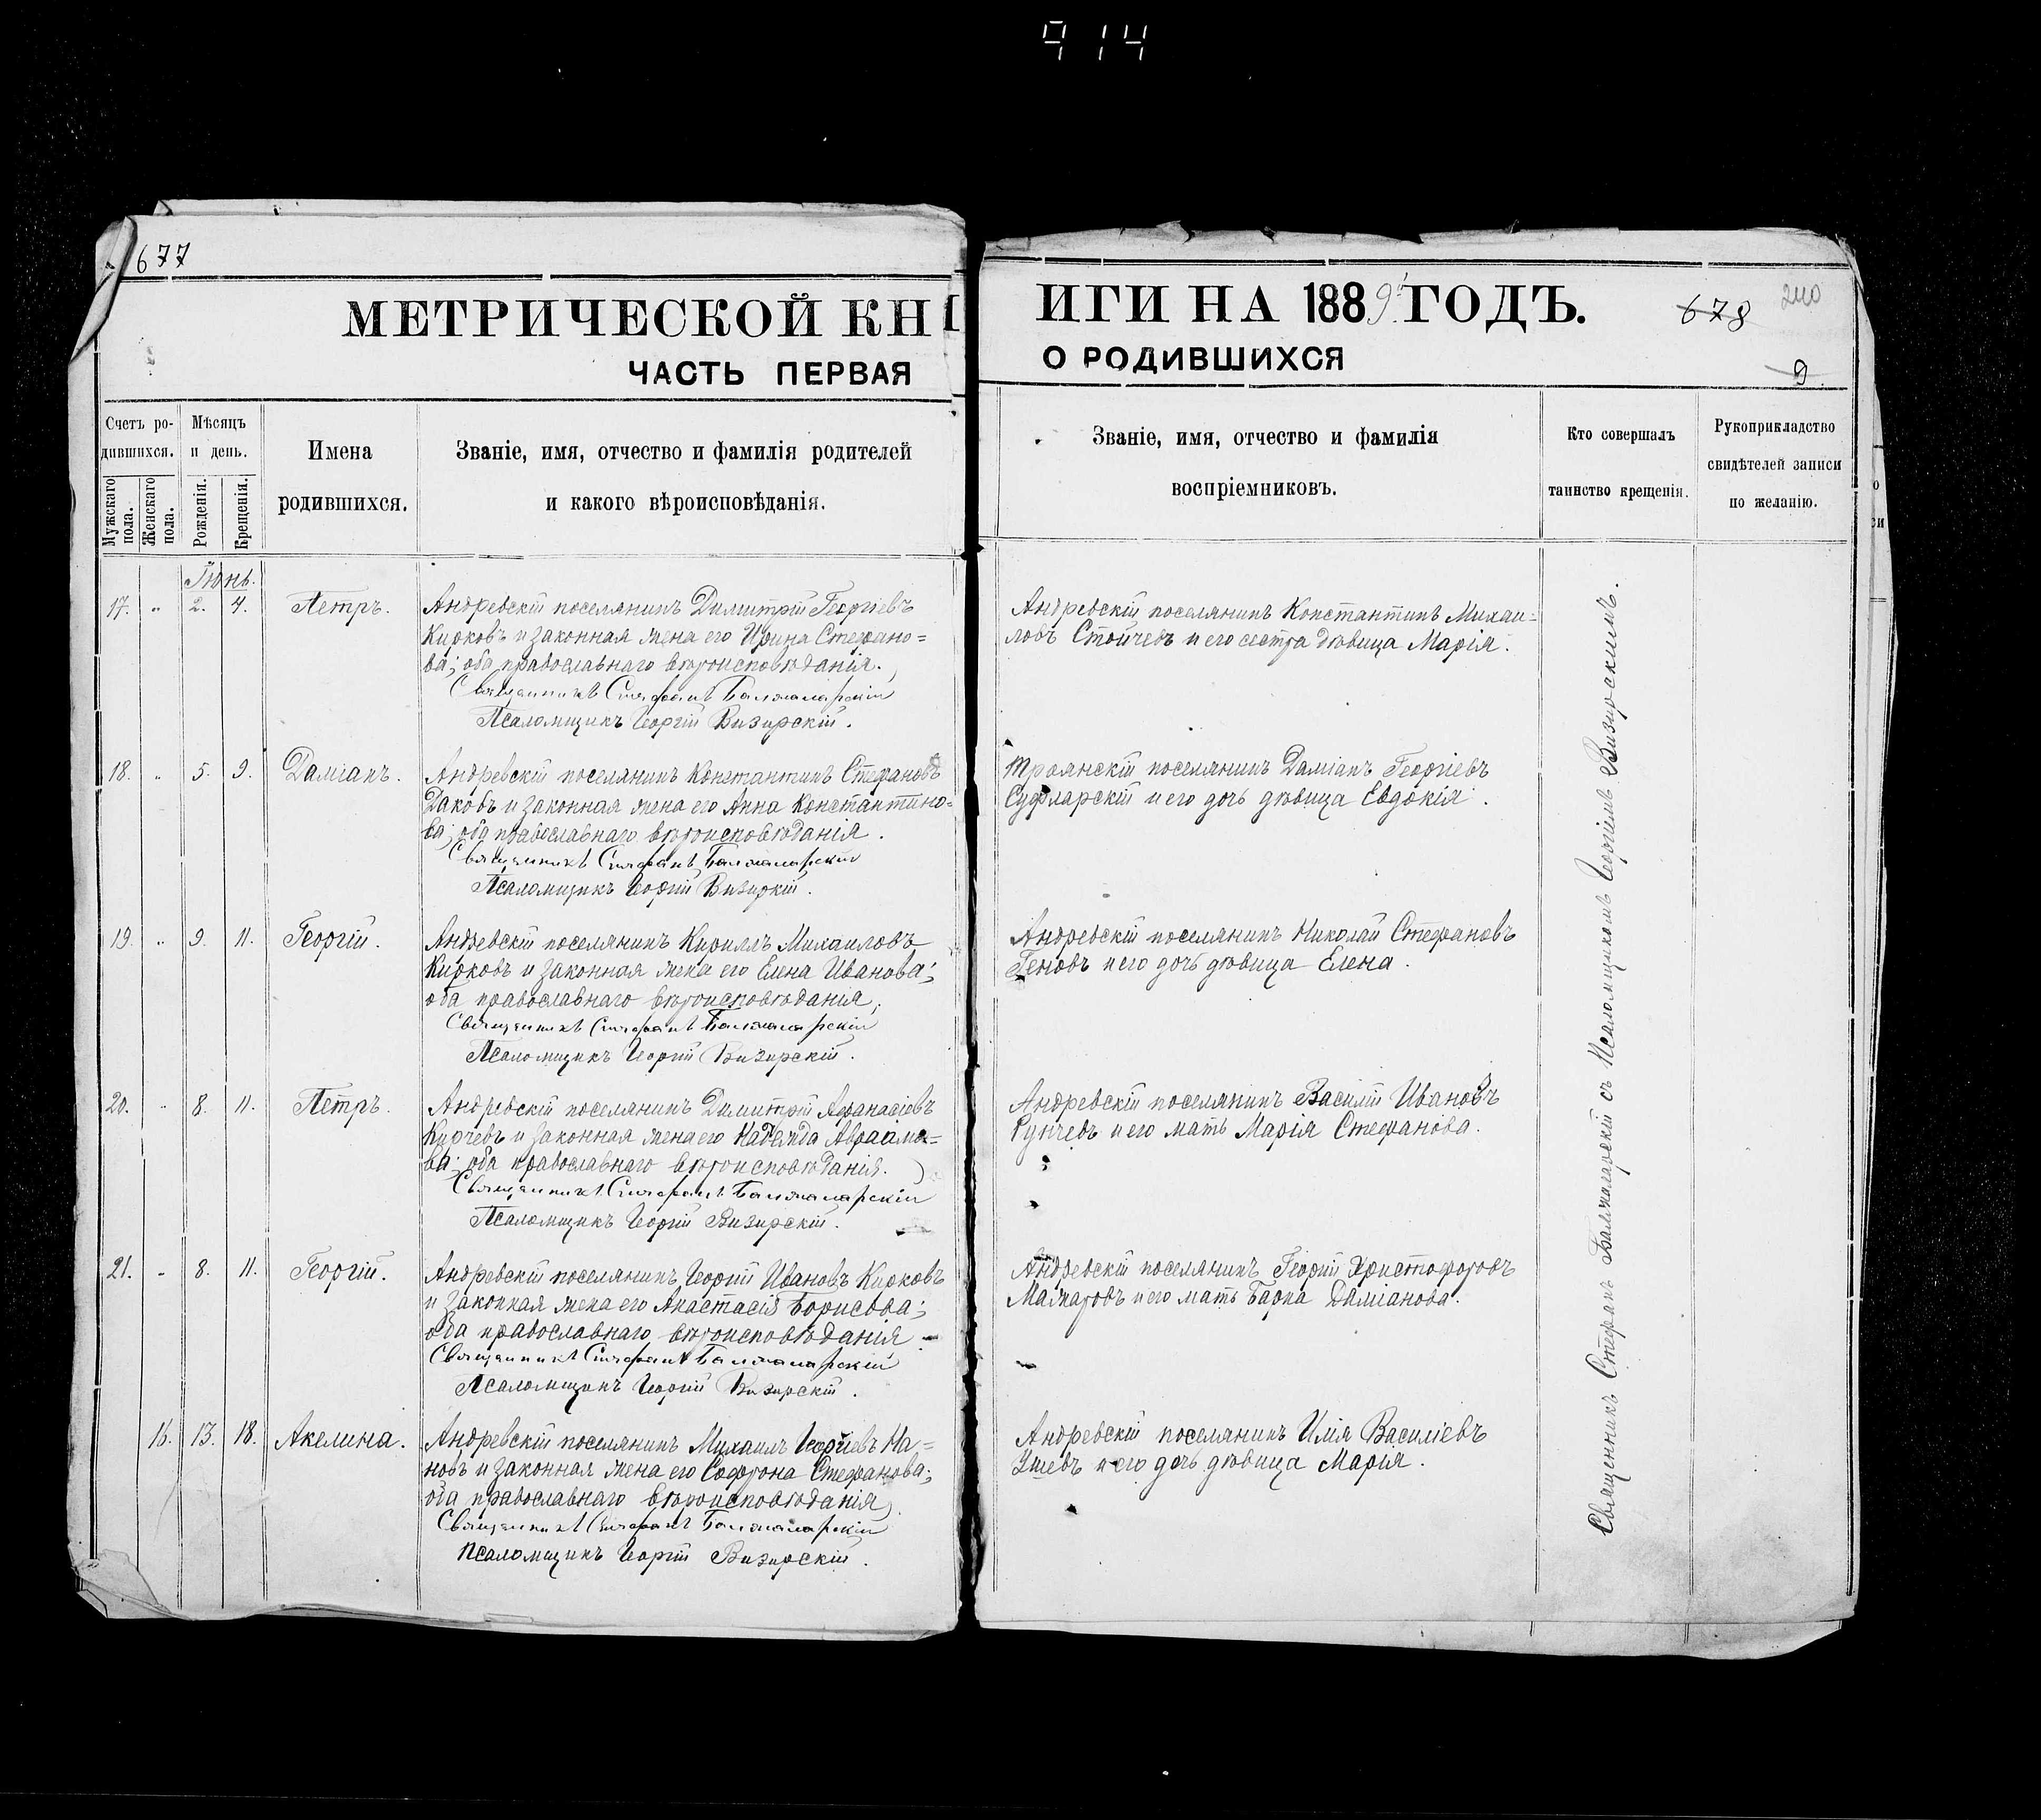 914
677
МЕТРИЧЕСКОЙ КН
ЧАСТЬ ПЕРВАЯ
Счетъ ро-
дившихся.
Мужскаго пола.
Женскаго пола.
Мѣсяцъ
и день.
Рожденія.
Крещенія.
Имена
родившихся.
Званіе, имя, отчество и фамилія родителей
и какого вѣроисповѣданія.
Іюнь.
17. " 2. 4. Петръ. Андревскій поселянинъ Димитрій Георгіевъ
Кирковъ и законная жена его Ирина Стефано=
ва; оба православнаго вѣроисповѣданія.
Священникъ Стефанъ Балжаларскій
Псаломщикъ Георгій Визирскій.
18. " 5. 9. Даміанъ. Андревскій поселянинъ Константинъ Стефановъ
Даковъ и законная жена его Анна Константино=
ва; оба православнаго вѣроисповѣданія.
Священникъ Стефанъ Балжаларскій
Псаломщикъ Георгій Визиркій.
19. " 9. 11. Георгій. Андревскій поселянинъ Кириллъ Михаиловъ
Кирковъ и законная жена его Елена Иванова;
оба православнаго вѣроисповѣданія;
Священникъ Стефанъ Балжаларскій
Псаломщикъ Георгій Визирскій.
20. " 8. 11. Петръ. Андревскій поселянинъ Димитрій Афанасіевъ
Курчевъ и законная жена его Надежда Авраамо=
ва; оба православнаго вѣроисповѣданія.
Священникъ Стефанъ Балжаларскій
Псаломщикъ Георгій Визирскій.
21. " 8. 11. Георгій. Андревскій поселянинъ Георгій Ивановъ Кирковъ
и законная жена его Анастасія Борисова;
оба православнаго вѣроисповѣданія
Священникъ Стефанъ Балжаларскій
Псаломщикъ Георгій Визирскій.
16. 13. 18. Акелина. Андревскій поселянинъ Михаилъ Георгіевъ На=
новъ и законная жена его Софрона Стефанова;
оба православнаго вѣроисповѣданія
Священникъ Стефанъ Балжаларскій
Псаломщикъ Георгій Визирскій.
ИГИ НА 1889 ГОДЪ.
678
240
О РОДИВШИХСЯ
9.
Званіе, имя, отчество и фамилія
воспріемниковъ.
Кто совершалъ
таинство крещенія.
Рукоприкладство
свидѣтелей записи
по желанію.
Андревскій поселянинъ Константинъ Михаи=
ловъ Стойчевъ и его сестра дѣвица Марія.
Троянскій поселянинъ Даміанъ Георгіевъ
и его дочь дѣвица Евдокія.
Андревскій поселянинъ Николай Стефановъ
Геновъ и его дочь дѣвица Елена.
Андревскій поселянинъ Василій Ивановъ
Рунчевъ и его мать Марія Стефанова.
Андревскій поселянинъ Георгій Христофоровъ
Мажаровъ и его мать Барна Даміанова.
Андревскій поселянинъ Илія Василіевъ
и его дочь дѣвица Марія.
Священникъ Стефанъ Балжаларскій съ Псаломщикомъ Георгіемъ Визирскимъ.